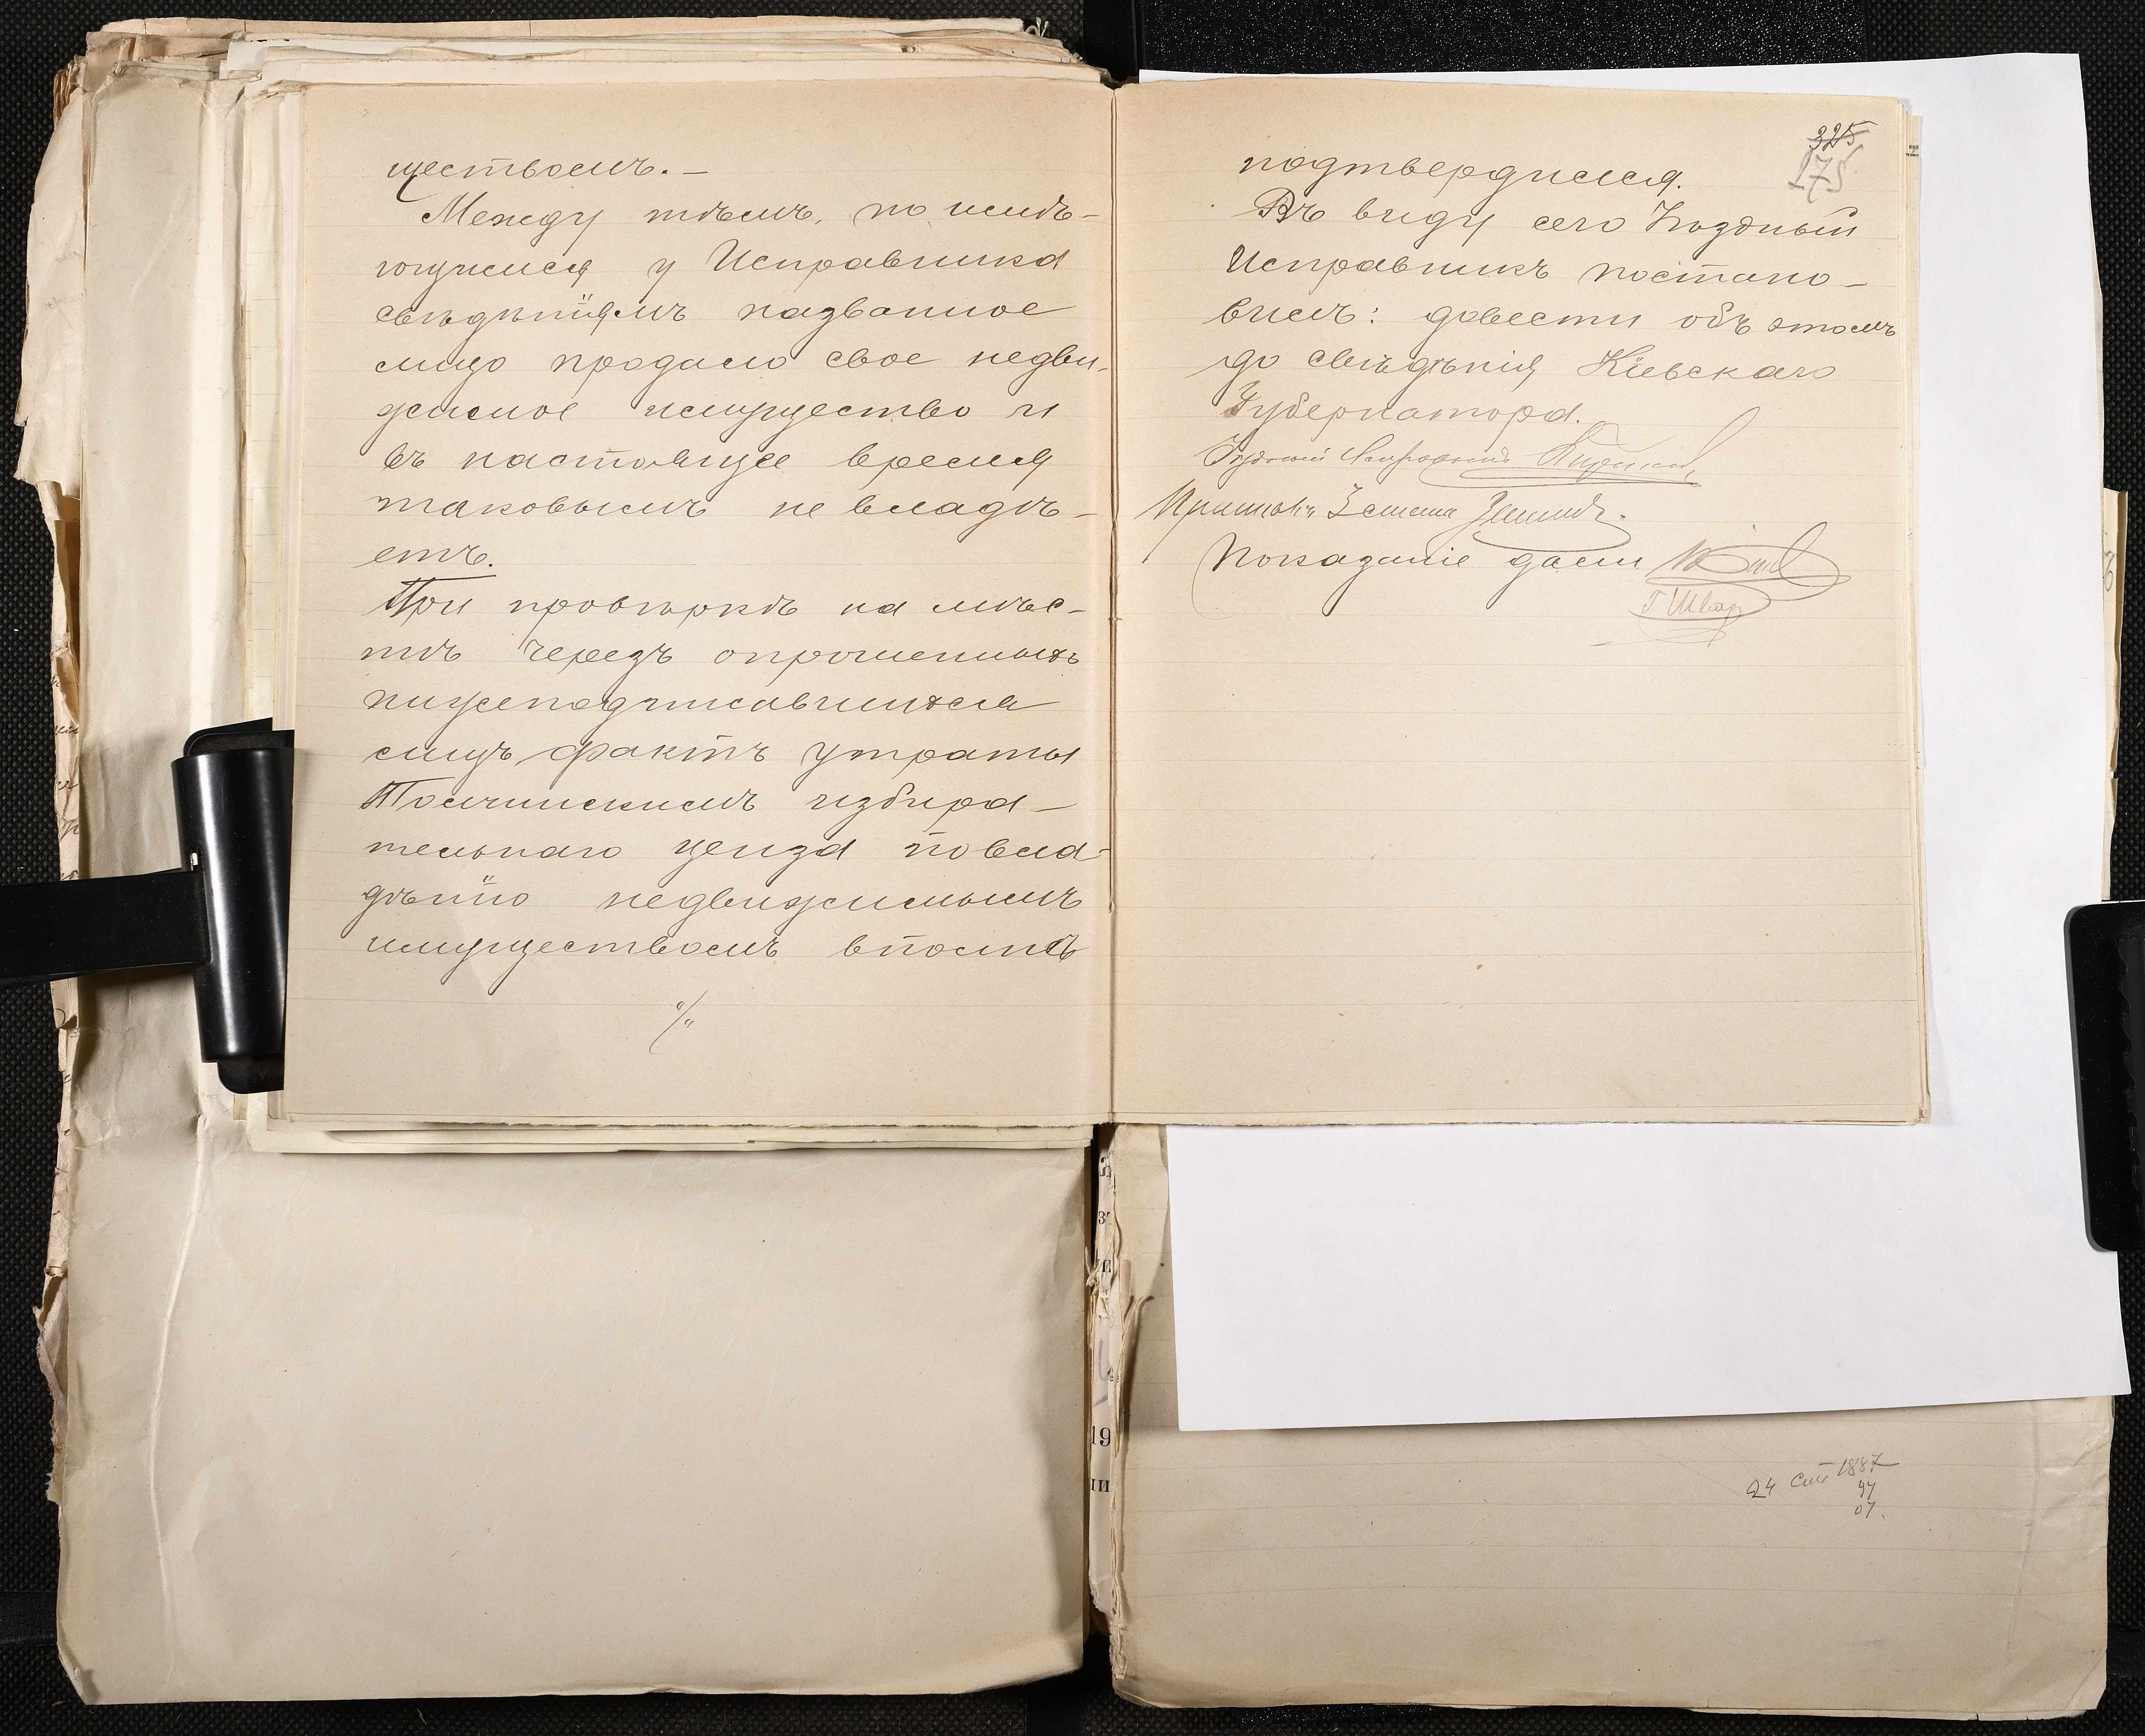 ществомъ. —
Между тѣмъ, по имѣ-
ющимся у Исправника
свѣдѣніямъ названное
лицо продало свое недви-
жимое имущество и
въ настоящее время
таковымъ не владѣ-
етъ.
При провѣркѣ на мѣс-
тѣ черезъ опрошенныхъ
нижеподписавшихся
лицъ фактъ утраты
избира-
тельнаго ценза по вла-
дѣнію недвижимымъ
имуществомъ вполнѣ
"/"
325
175
подтвердился.
Въ виду сего Уѣздный
Исправникъ постано-
вилъ: довести объ этомъ
до свѣдѣнія Кіевскаго
Губернатора.
Уѣздный Исправникъ
Показаніе дали
Г. Швар
19
24 1887
97
07.